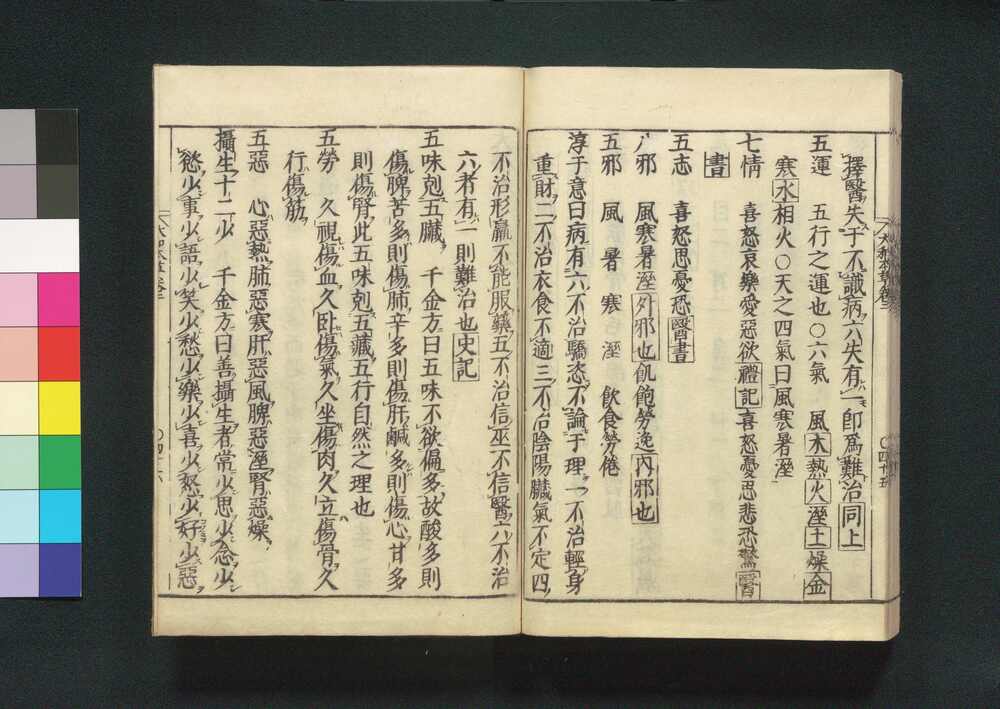 擇醫失于不識病六失有一即爲難治同上
五運　五行之運也○六氣　風木熱火溼土燥金
寒水相火○天之四氣曰風寒暑溼
七情　喜怒哀樂愛惡欲禮記喜怒憂思悲恐驚醫
書
五志　喜怒思憂恐醫書
八邪　風寒暑溼外邪也飢飽勞逸内邪也
五邪　風　暑　寒　溼　飲食勞倦
淳于意曰病有六不治驕恣不論于理一不治輕身
重財二不治衣食不適三不治陰陽臟氣不定四
不治形羸不能服藥五不治信巫不信醫六不治
六者有一則難治也史記
五味剋五臟　千金方曰五味不欲偏多故酸多則
傷脾苦多則傷肺辛多則傷肝鹹多則傷心甘多
則傷腎此五味剋五臟五行自然之理也
五勞　久視傷血久卧傷氣久坐傷肉久立傷骨久
行傷筋
五惡　心惡熱肺惡寒肝惡風脾惡溼腎惡燥
攝生十二少　千金方曰善攝生者常少思少念少
慾少事少語少笑少愁少樂少喜少怒少好少惡